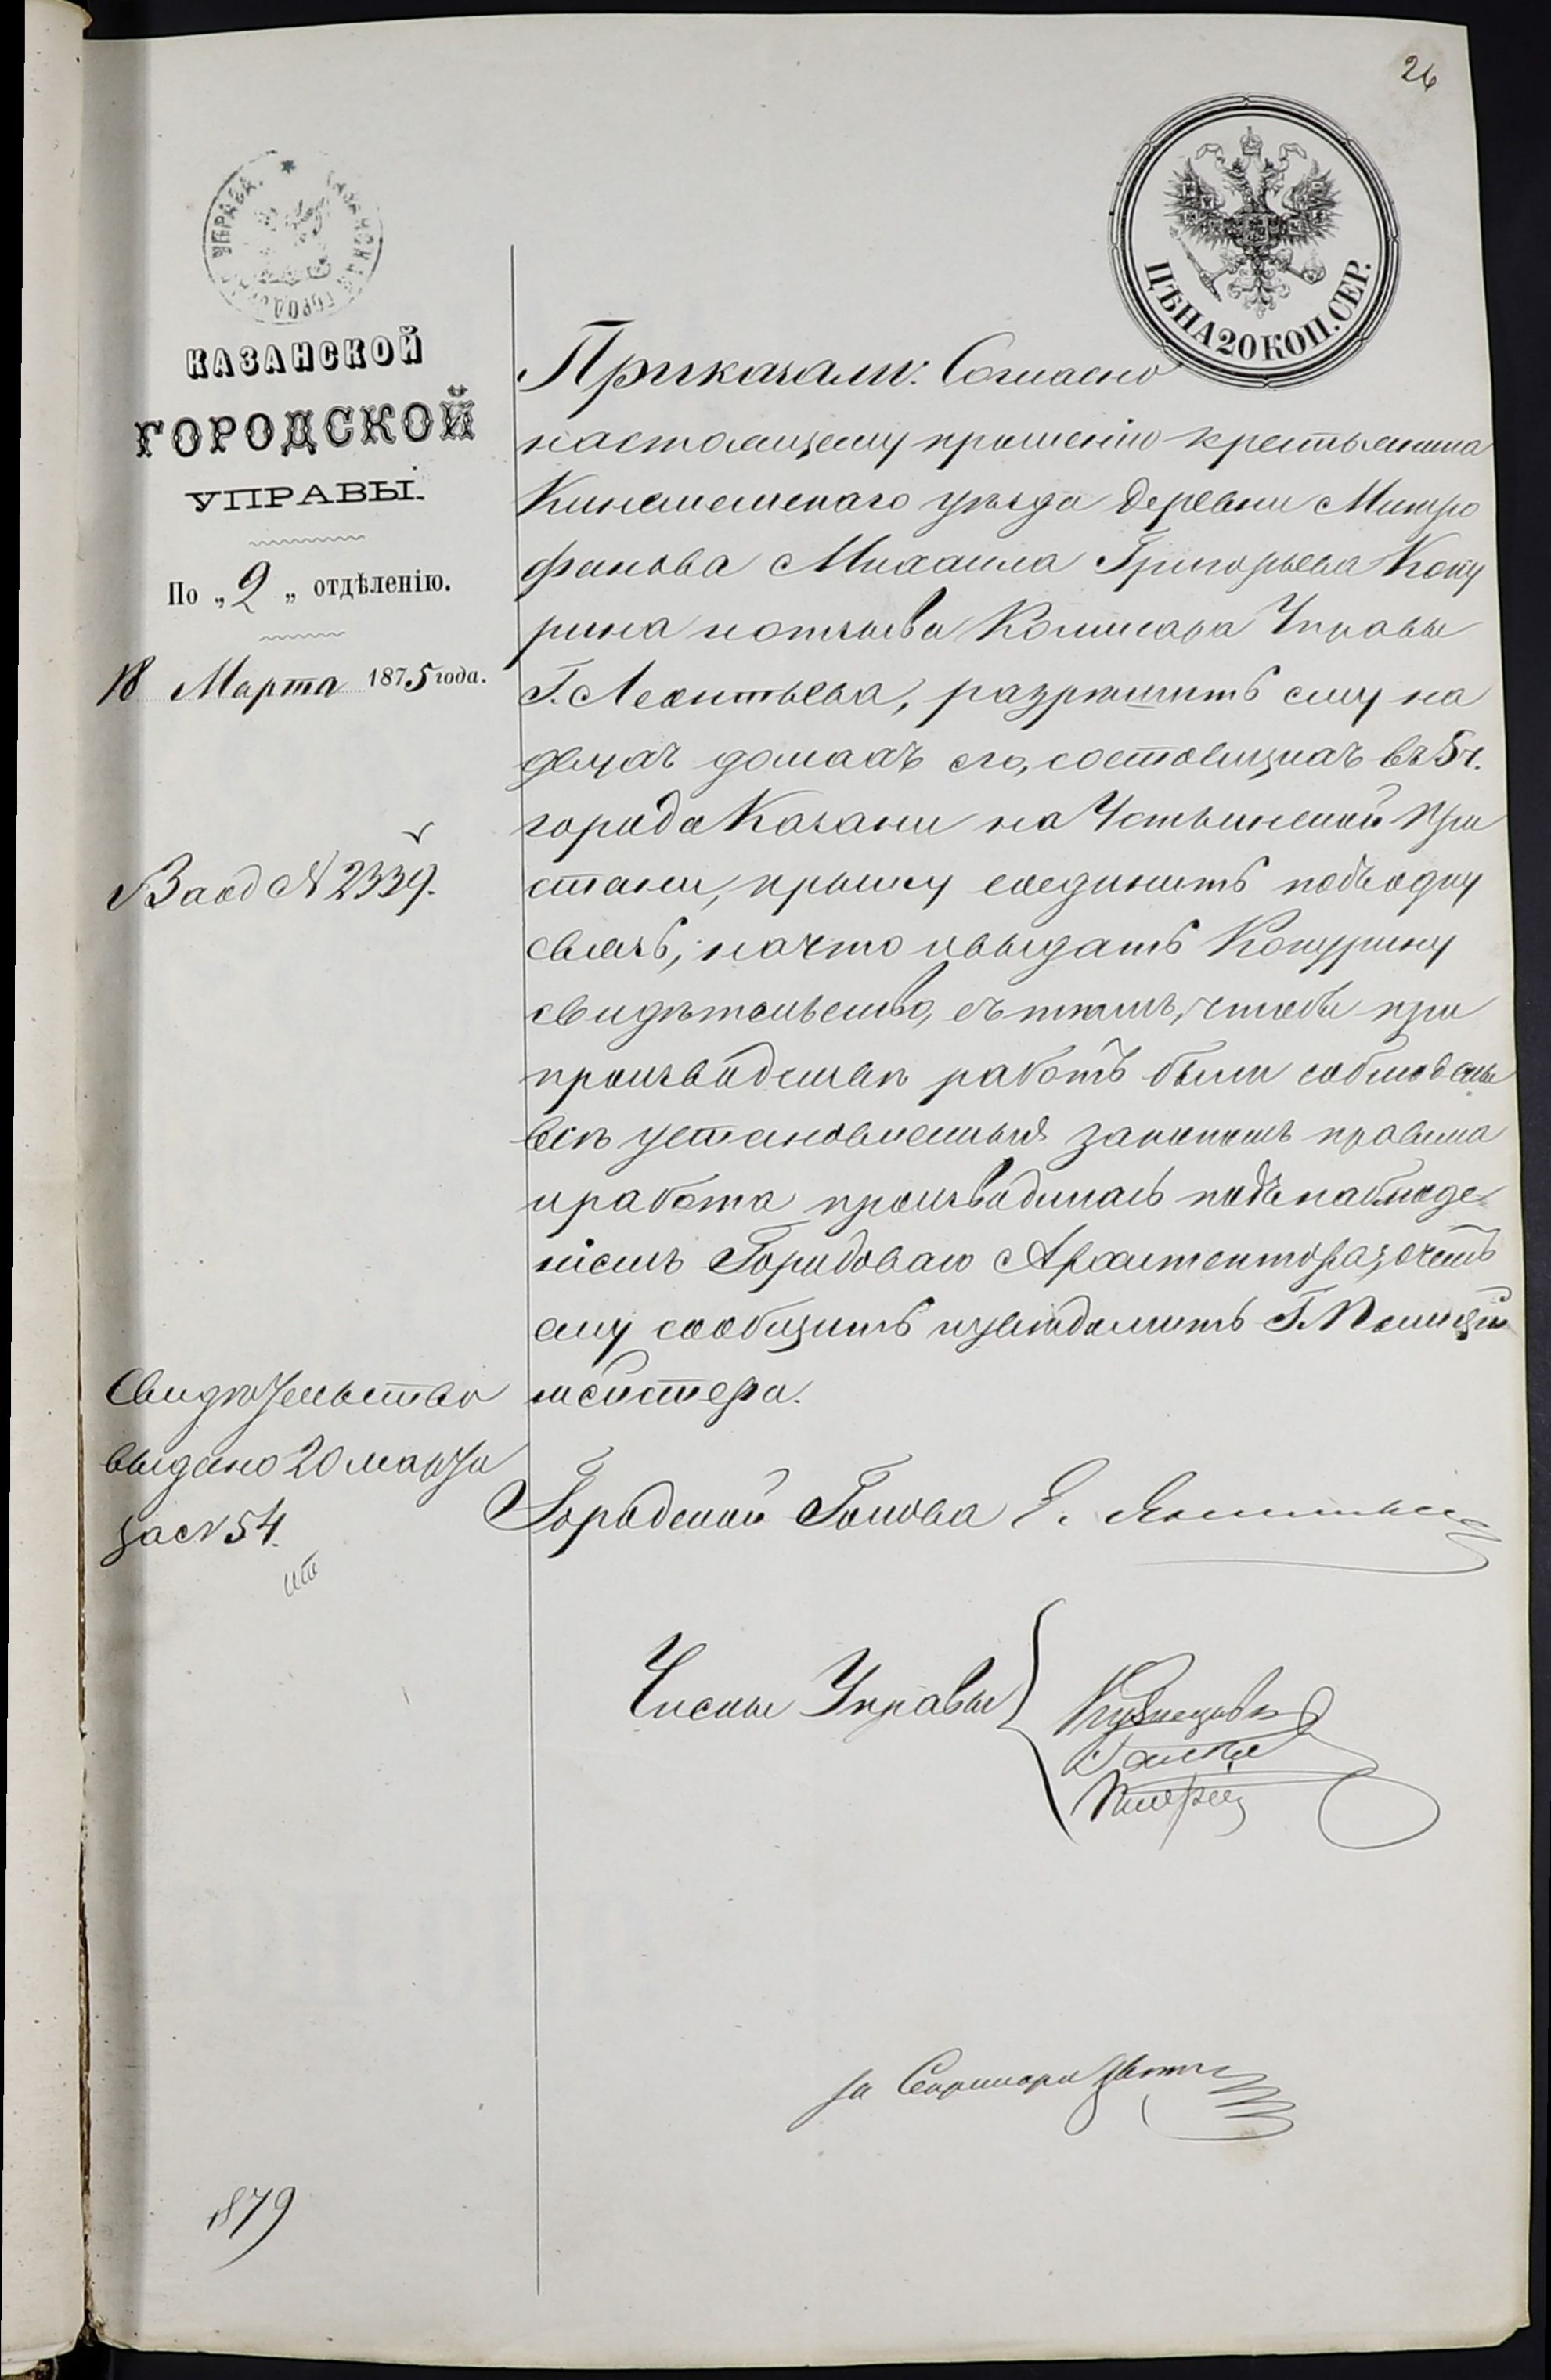 26
КАЗАНСКАЯ ГОРОДСКАЯ УПРАВА.
ЦѢНА 20 КОП. СЕР.
КАЗАНСКОЙ
ГОРОДСКОЙ
УПРАВЫ.
По „2„ отдѣленію.
18 Марта 1875 года.
Вход № 2339.
Свидѣтельство
выдано 20 марта
за № 54.
1879
Приказали: Согласно
настоящему прошенію крестьянина
Кинешемскаго уѣзда деревни Митро
фанова Михаила Григорьева Коку
рина и отзыва Комисара Управы
Г. Леонтьева, разрѣшить ему на
двухъ домахъ его, состоящихъ въ 5 ч.
города Казани на Устьинской При
стани, крышу соединить подъ одну
связь, на что и выдать Кокурину
свидѣтельство, съ тѣмъ, чтобы при
производствѣ работъ были соблюдены
всѣ установленныя закономъ правила
и работа производилась подъ наблюде
ніемъ Городоваго Архитектора, о чемъ
ему сообщить и увѣдомить Г. Полицій
мейстера.
Городской Голова Е.
Члены Управы
Кузнецовъ
за Секретаря